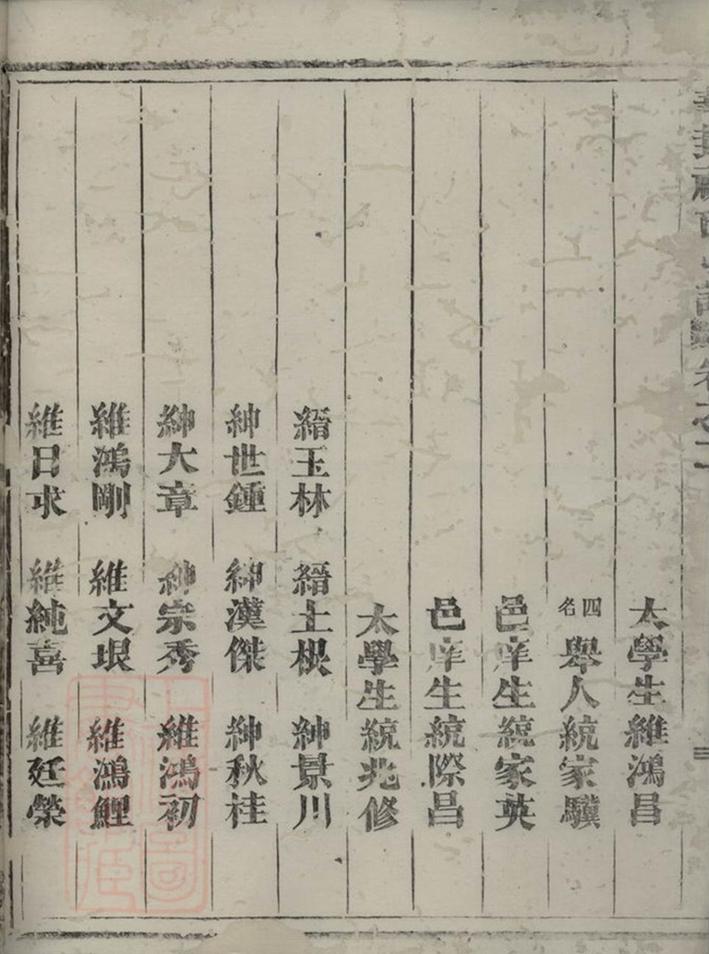 太學生維鴻昌
四名舉人統家驥
邑庠生統家英
邑庠生統際昌
太學生統兆修
縉玉林 縉士根 紳景川
紳世鍾 紳漢傑 紳秋桂
紳大章 紳宗秀 維鴻初
維鴻剛 維文垠 維鴻鯉
維日求 維純喜 維廷榮